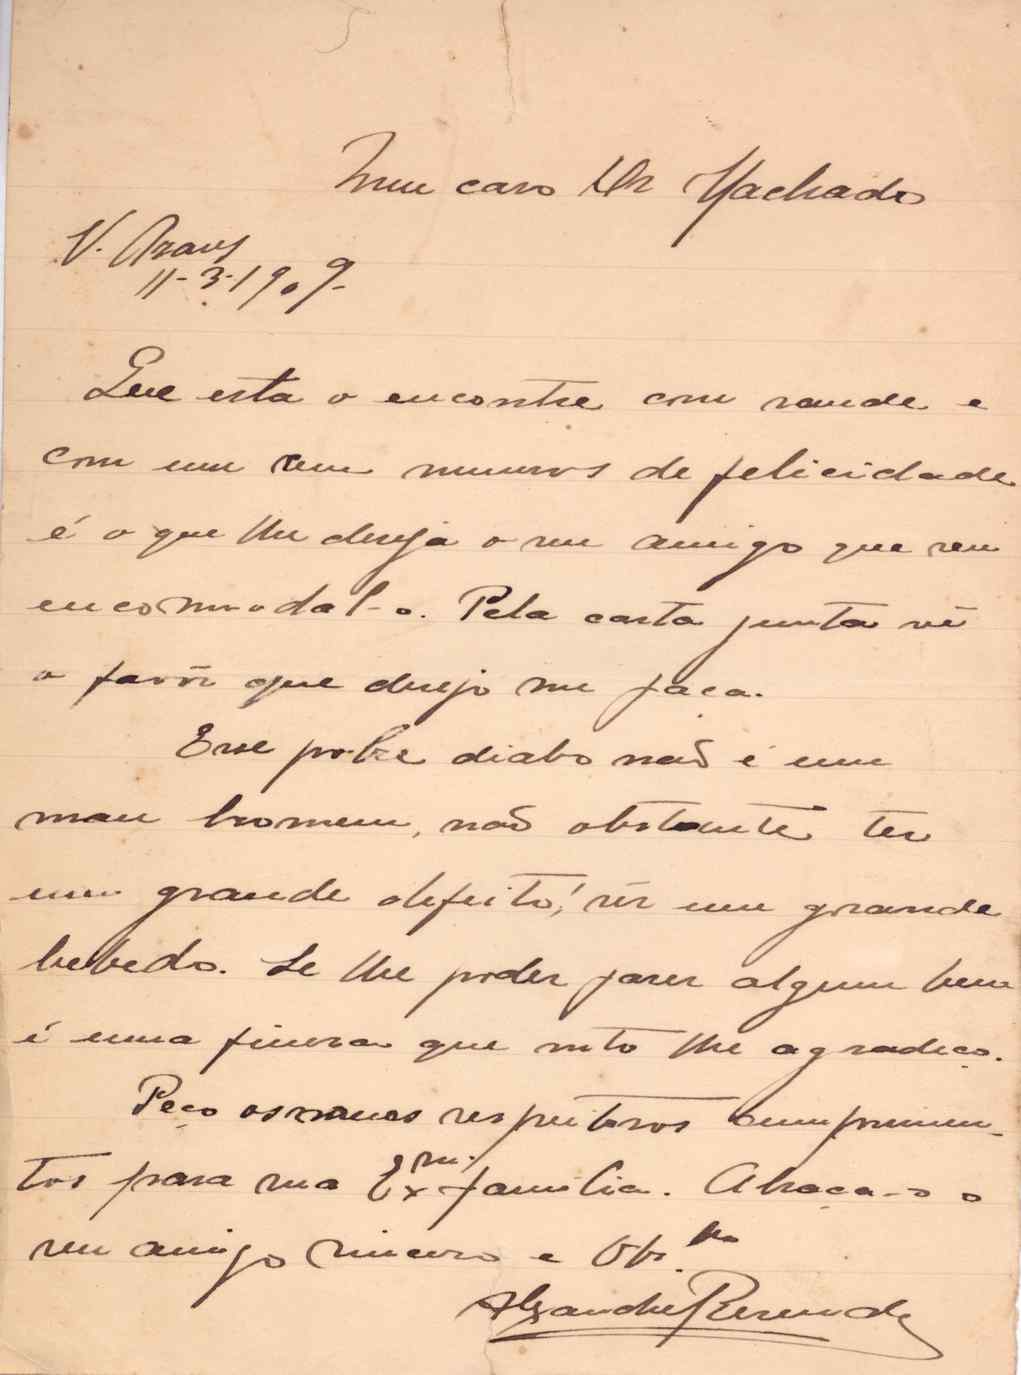 Meu caro Dr Machado
V. Braz
11-3-1909-
Que esta o encontre com saude e
com um sem numeros de felicidade
é o que lhe deseja o seu amigo que vem
encommodal-o. Pela carta junta vê
o favôr que desejo me faça.
Esse pobre diabo não é um
mau homem, não obstante ter
um grande defeito! sêr um grande
bebedo. Se lhe poder fazer algum bem
é uma fineza que mto lhe agradeço.
Peço os meus respeitosos cumprimen-
tos para sua Exma familia. Abraça-o o
seu amigo sincero e Obr.
Alexandre Resende